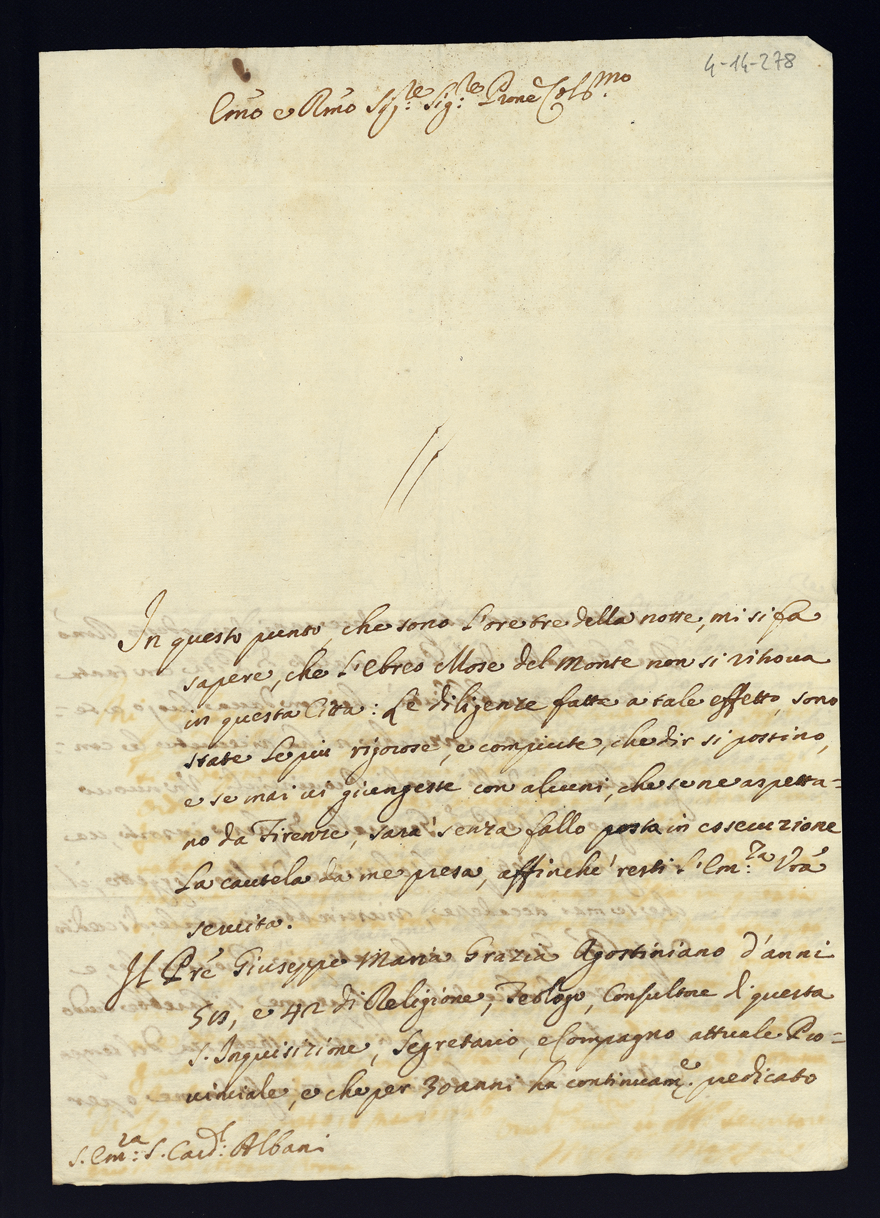 4-14-278
Em̃o e Rm̃o Sig:re Sig:re Pr̃one Col:mo
In questo punto, che sono l'ore tre della notte, mi si fa
sapere, che l'Ebreo Mose del Monte non si ritroua
in questa Citta: Le diligenze fatte a tale effetto, sono
state le piu rigorose, e compiute, che dir si possino,
e se mai ui giungesse con alcuni, che se ne aspetta=
no da Firenze, sara' senza fallo posta in esecuzione
la cautela da me presa, affinche' resti l'Em:za Vr̃a
seruita.
Il Pr̃e Giuseppe Maria Grazia Agostiniano d'anni
e 42 di Religione, Teologo, Consultore di questa
S. Inquisizione, Segretario, e Compagno attuale Pro=
uinciale, e che per 30 anni ha continuam:e predicato
S. Em:za S. Card:l Albani